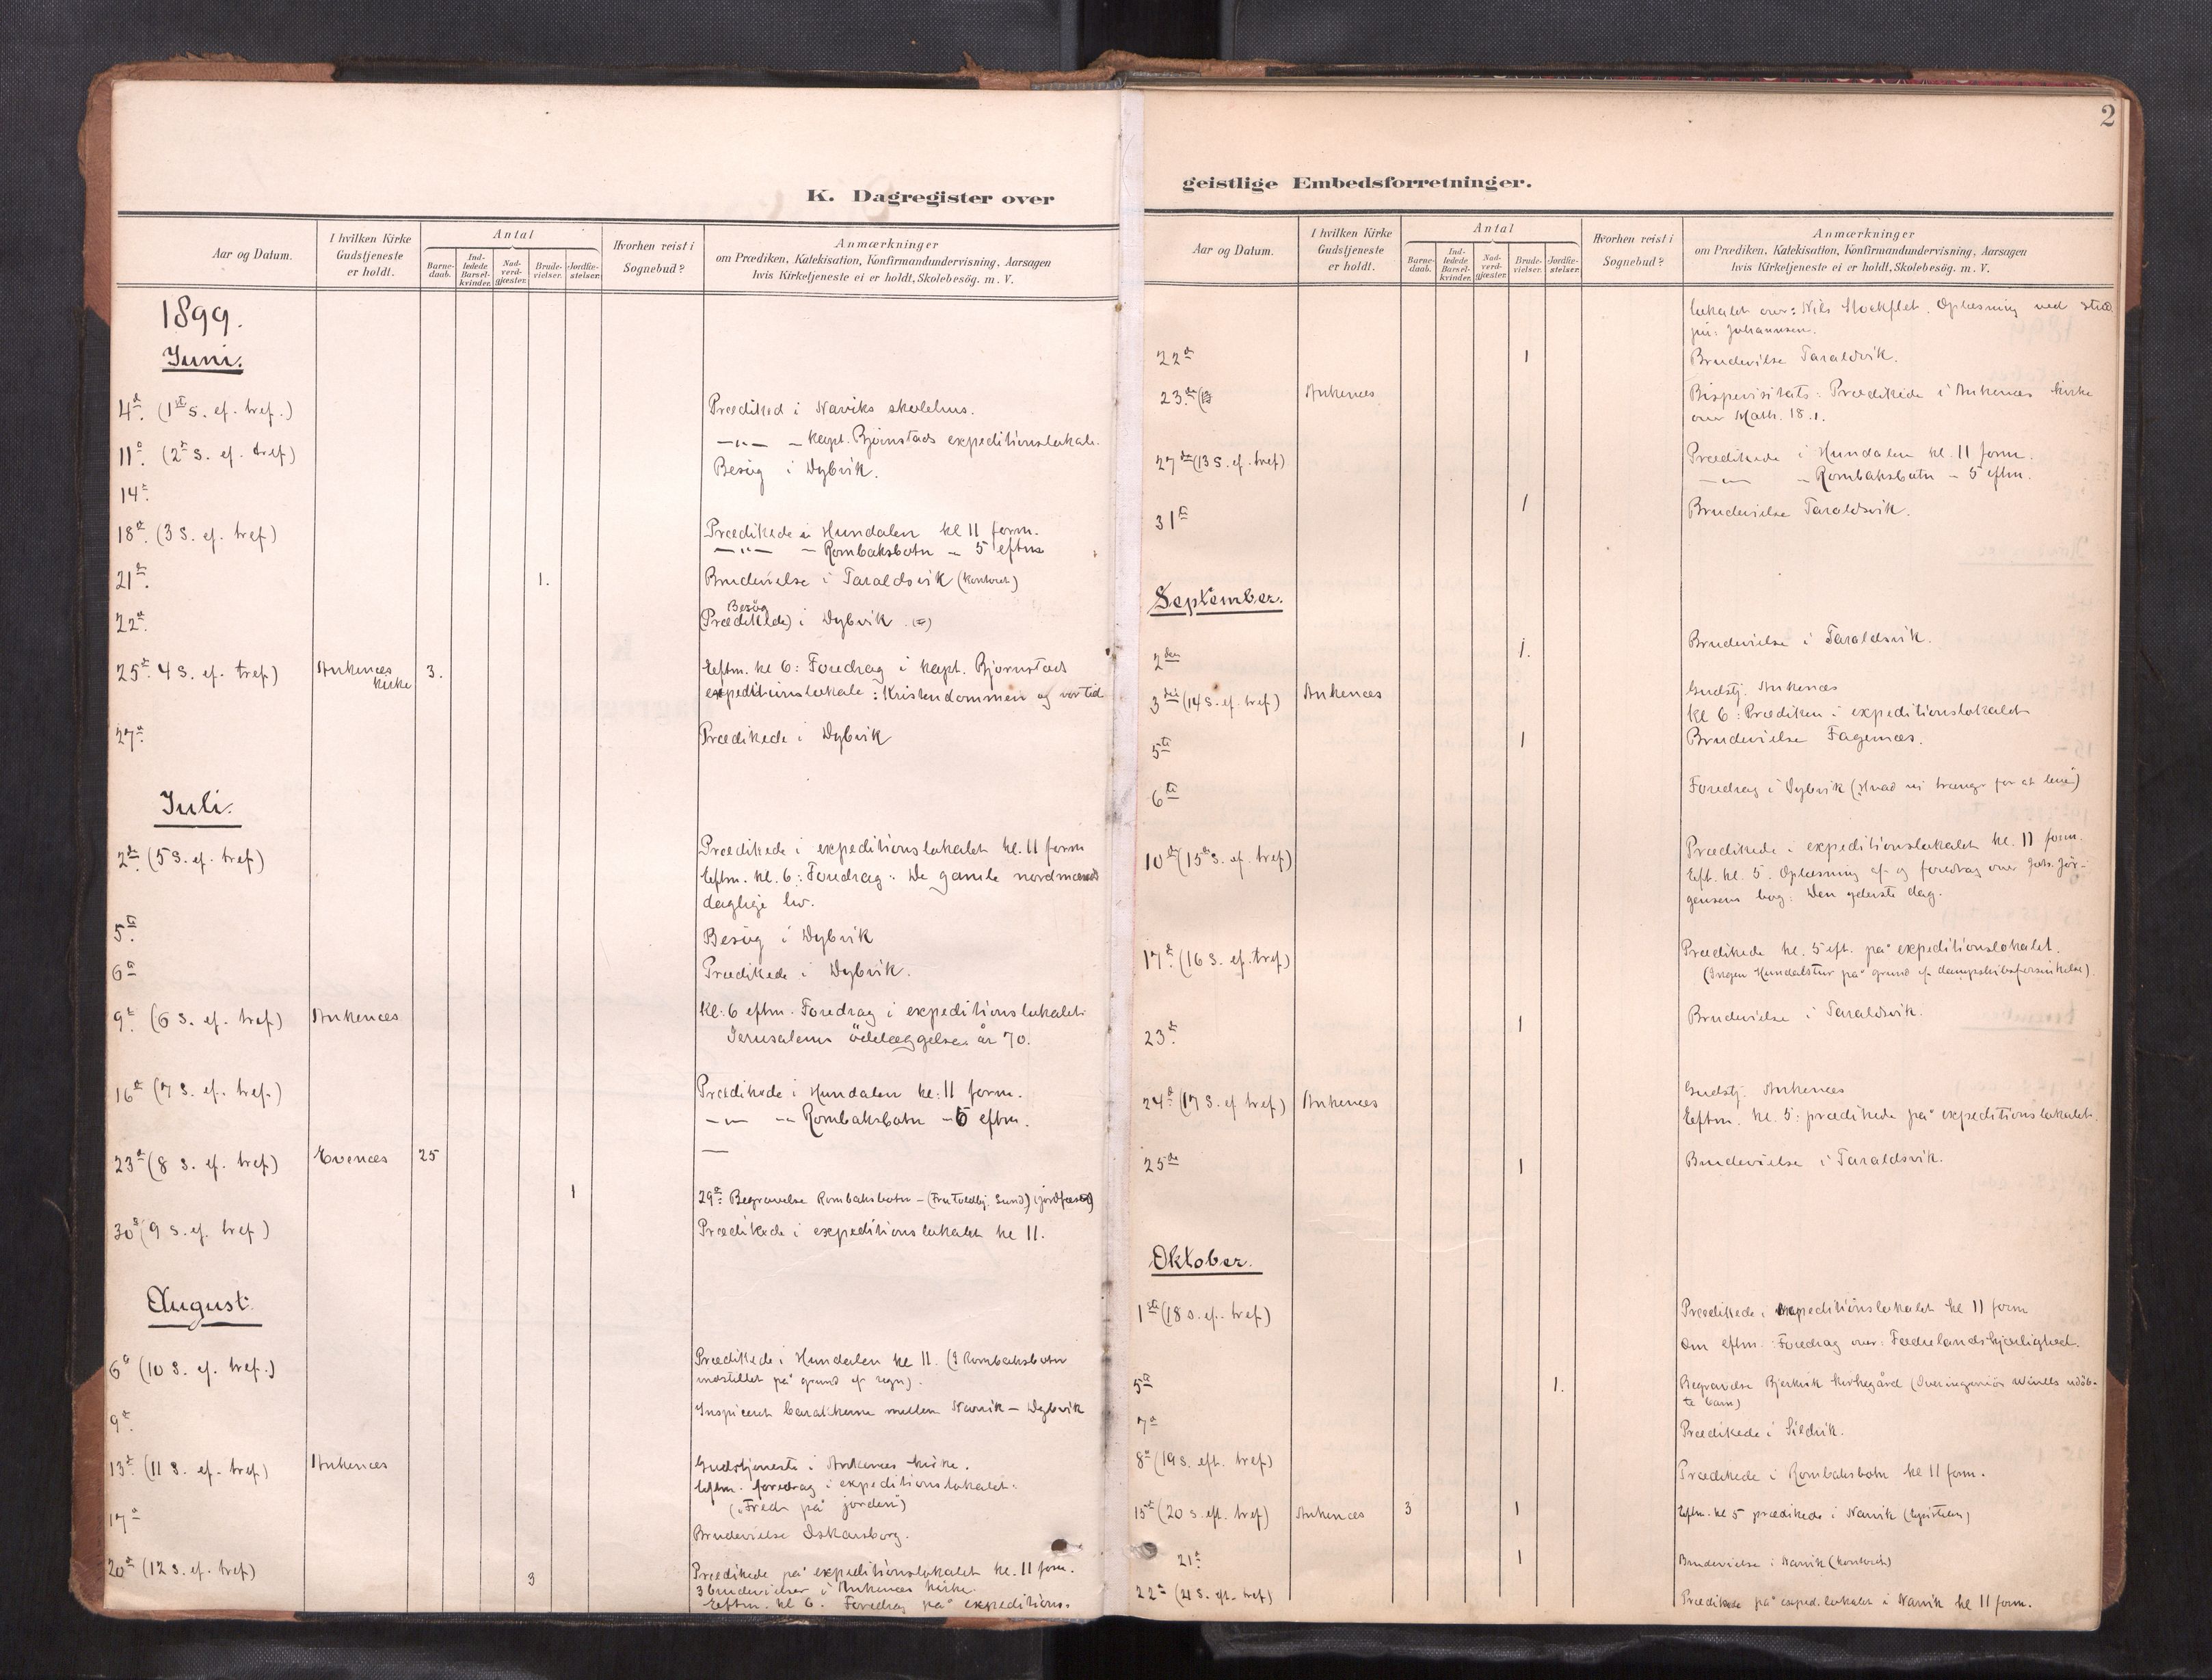 2
K. Dagregister over
Aar og Datum.
I hvilken Kirke Gudstjeneste er holdt.
Antal
Barne-daab.
Ind-ledede Barsel-kvinder.
Nad-verd-gjæster.
Brude-vielser.
Jordfæ-stelser.
Hvorhen reist i Sognebud?
Anmærkninger
om Prædiken, Katekisation, Konfirmandundervisning, Aarsagen
hvis Kirketjeneste ei er holdt, Skolebesög. m. V.
1899.
Juni.
4d. (1ste s. ef. tref.) Prædiked i Naviks skolehus.
11te. (2den s. ef. tref) —"— - kapt. Bjørnstads expeditionslokale.
14de. Besøg i Dybvik.
18de. (3 s. ef. tref) Prædikede i Hundalen kl 11 form.
—"— - Rombaksbotn - 5 eftm
21de. 1. Brudevielse i Taraldsvik (kontoret)
Besøg
22de. (Prædikede) i Dybvik.
25de. 4 s. ef. tref) Ankenæs kirke 3. Eftm. kl 6: Foredrag i kapt. Bjørnstads
expeditionslokale: Kristendommen og vor tid
27de. Prædikede i Dybvik
Juli.
2den. (5 s. ef. tref) Prædikede i expeditionslokalet kl. 11 form
Eftm. kl. 6: Foredrag: De gamle nordmænds
daglige liv.
5te. Besøg i Dybvik
6te Prædikede i Dybvik.
9de. (6 s. ef. tref) Ankenæs kl: 6 eftm. Foredrag i expeditionslokalet.
Jerusalems ödelæggelse år 70.
16de (7 s. ef. tref.) Prædikede i Hundalen kl: 11 form.
—"— -"- Rombaksbotn - 5 eftm.
23de (8 s. ef. tref) Evenæs 25 —
1 29de: Begravelse Rombaksbotn - (Fru Toldbj. Sund) (jordfæstet)
30te (9 s. ef. tref) Prædikede i expeditionslokalet kl 11.
August.
6te (10 s. ef. tref.) Prædikede i Hundalen kl 11. (I Rombaksbotn
indstillet på grund af regn).
9de. Inspiceret barakkerne mellem Narvik - Dybvik
13de. (11 s. ef. tref) Ankenæs Gudstjeneste i Ankenæs kirke.
Eftm. foredrag i expeditionslokalet.
("Fred på jorden")
17de Brudevielse Oskarsborg.
20de (12 s. ef. tref) 3 Prædikede på expeditionslokalet kl. 11 form.
3 brudevielser i Ankenæs kirke.
Eftm. kl 6. Foredrag på expeditions-
geistlige Embedsforretninger.
Aar og Datum.
I hvilken Kirke Gudstjeneste er holdt.
Antal
Barne-daab.
Ind-ledede Barsel-kvinder.
Nad-verd-gjæster.
Brude-vielser.
Jordfæ-stelser.
Hvorhen reist i Sognebud?
Anmærkninger
om Prædiken, Katekisation, Konfirmandundervisning, Aarsagen
hvis Kirketjeneste ei er holdt, Skolebesög. m. V.
lokalet over: Nils Stockflet. Oplæsning ved stud.
jur: Johannsen.
22de 1 Brudevilse Taraldvik.
23de Ankenæs Bispevisitats: Prædikede i Ankenæs kirke
over Math. 18.1.
27de (13 s. ef. tref) Prædikede i Hundalen kl. 11 form.
—"— - Rombaksbotn - 5 eftm.
31te 1 Brudevielse Taraldsvik.
September.
2den 1. Brudevielse i Taraldsvik.
3die (14 s. ef. tref) Ankenæs Gudstj. Ankenæs
kl 6: Prædiken i expeditionslokalet
5te 1 Brudevielse Fagernæs.
6te Foredrag i Dybvik (Hvad vi trænge for at leve)
10de (15de s. ef. tref) Prædikede i expeditionslokalet kl. 11 form.
Eft. kl. 5. Oplæsning af og foredrag over Johs. Jör-
gensens bog: Den yderste dag.
17de. (16 s. ef. tref) Prædikede kl. 5 eft. på expeditionslokalet.
(Ingen Hundalstur på grund af dampskibsforsinkelse).
23de. 1 Brudevielse i Taraldsvik.
24de (17 s. ef tref) Ankenæs Gudstj. Ankenæs
Eftm. kl. 5: prædikede på expeditionslokalet.
25de 1 Brudevielse i Taraldsvik.
Oktober.
1ste (18 s. ef. tref) Prædikede i expeditionslokalet kl 11 form
Om eftm. Foredrag over: Fædrelandskjærlighed.
5te 1. Begravelse Bjerkvik kirkegård (Overingeniör Wirlls udöb-
te barn)
7de Prædikede i Sildvik.
8de (19 s. eft. tref) Prædikede i Rombaksbotn kl 11 form.
15de (20 s. eft. tref) Ankenæs 3 1 Eftm. kl 5 prædikede i Narvik (Epistelen)
21de. 1 Brudevielse i Narvik (kontoret)
22de (21 s. eft. tref) Prædikede på exped.lokalet i Narvik kl 11 form.